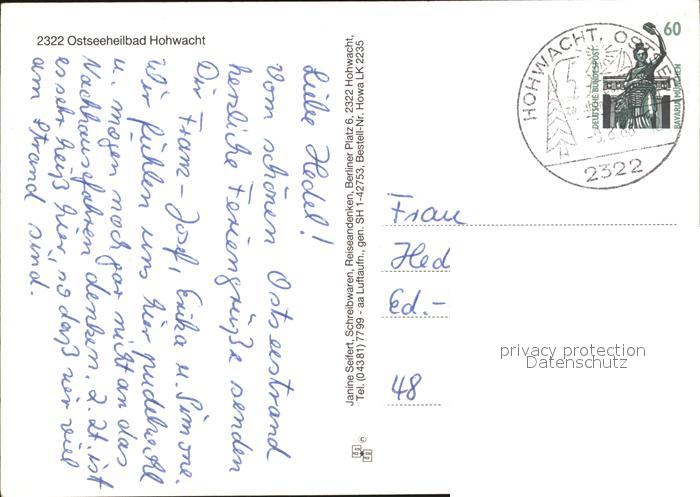 2322 Ostseeheilbad Hohwacht
Liebe Hedel!
Vom schönen Ostseestrand
herzliche Feriengrüße senden
Dir Franz-Josef, Erika u. Simone.
Wir fühlen uns hier pudelwohl
u. mögen noch gar nicht an das
Nachhausefahren denken. Z. Zt. ist
es sehr heiß hier, so daß wir viel
am Strand sind.
Janine Seifert, Schreibwaren, Reiseandenken, Berliner Platz 6, 2322 Hohwacht,
Tel. (04381) 7799 - aa Luftaufn., gen. SH 1-42753, Bestell-Nr. Howa LK 2235
©
60
DEUTSCHE BUNDESPOST
BAVARIA MÜNCHEN
HOHWACHT, OSTSEE
2322
Frau
Hed
Ed.-
48
privacy protection
Datenschutz